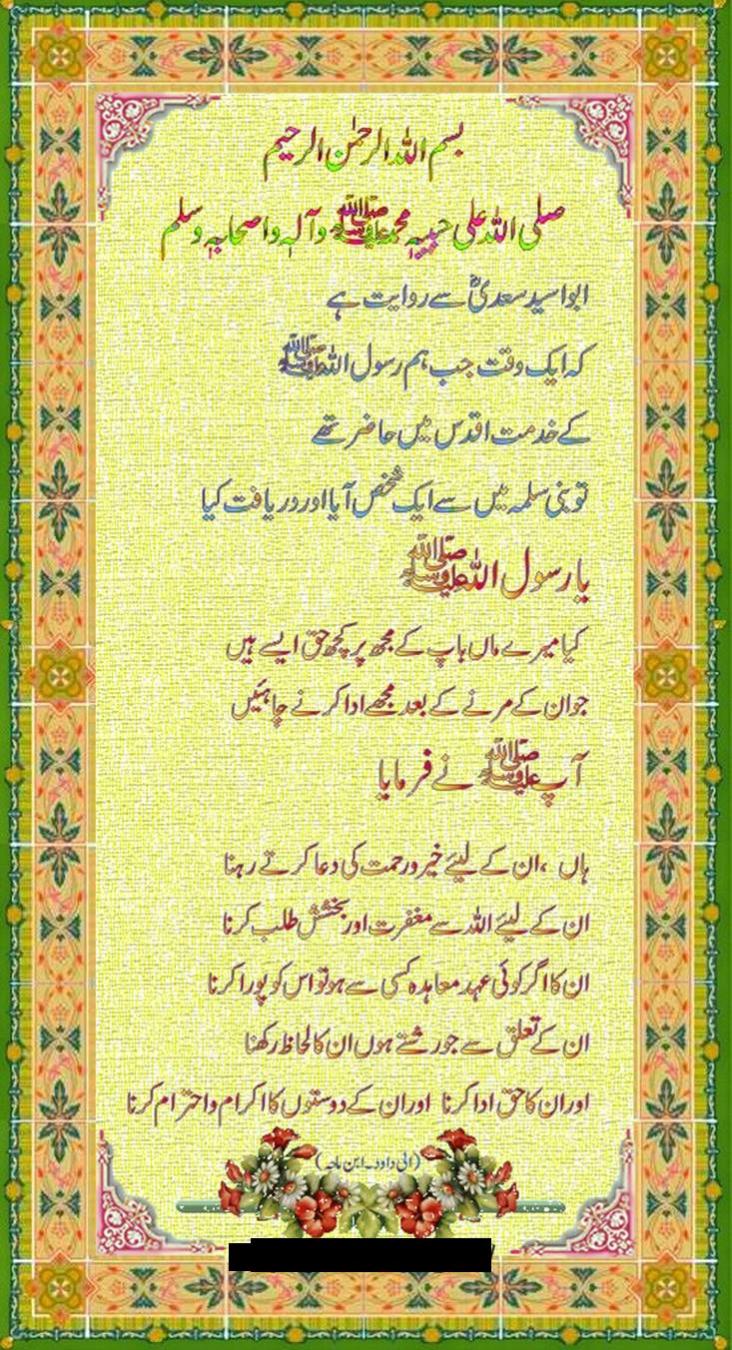 بسم اللہ الرحمٰن الرحیم
صلی اللہ علی حبیبہٖ محمد ﷺ وآلہٖ واصحابہٖ وسلم
ابو اسید سعدیؓ سے روایت ہے
کہ ایک وقت جب ہم رسول اللہ ﷺ
کے خدمت اقدس میں حاضر تھے
تو بنی سلمہ میں سے ایک شخص آیا اور دریافت کیا
یا رسول اللہ ﷺ
کیا میرے ماں باپ کے مجھ پر کچھ حق ایسے ہیں
جو ان کے مرنے کے بعد مجھے ادا کرنے چاہئیں
آپ ﷺ نے فرمایا
ہاں ،ان کے لیئے خیر ورحمت کی دعا کرتے رہنا
ان کے لیئے اللہ سے مغفرت اور بخشش طلب کرنا
ان کا اگر کوئی عہد معاہدہ کسی سے ہو تو اس کو پورا کرنا
ان کے تعلق سے جو رشتے ہوں ان کا لحاظ رکھنا
اور ان کا حق ادا کرنا اور ان کے دوستوں کا اکرام واحترام کرنا
(ابی داود۔ابن ماجہ)